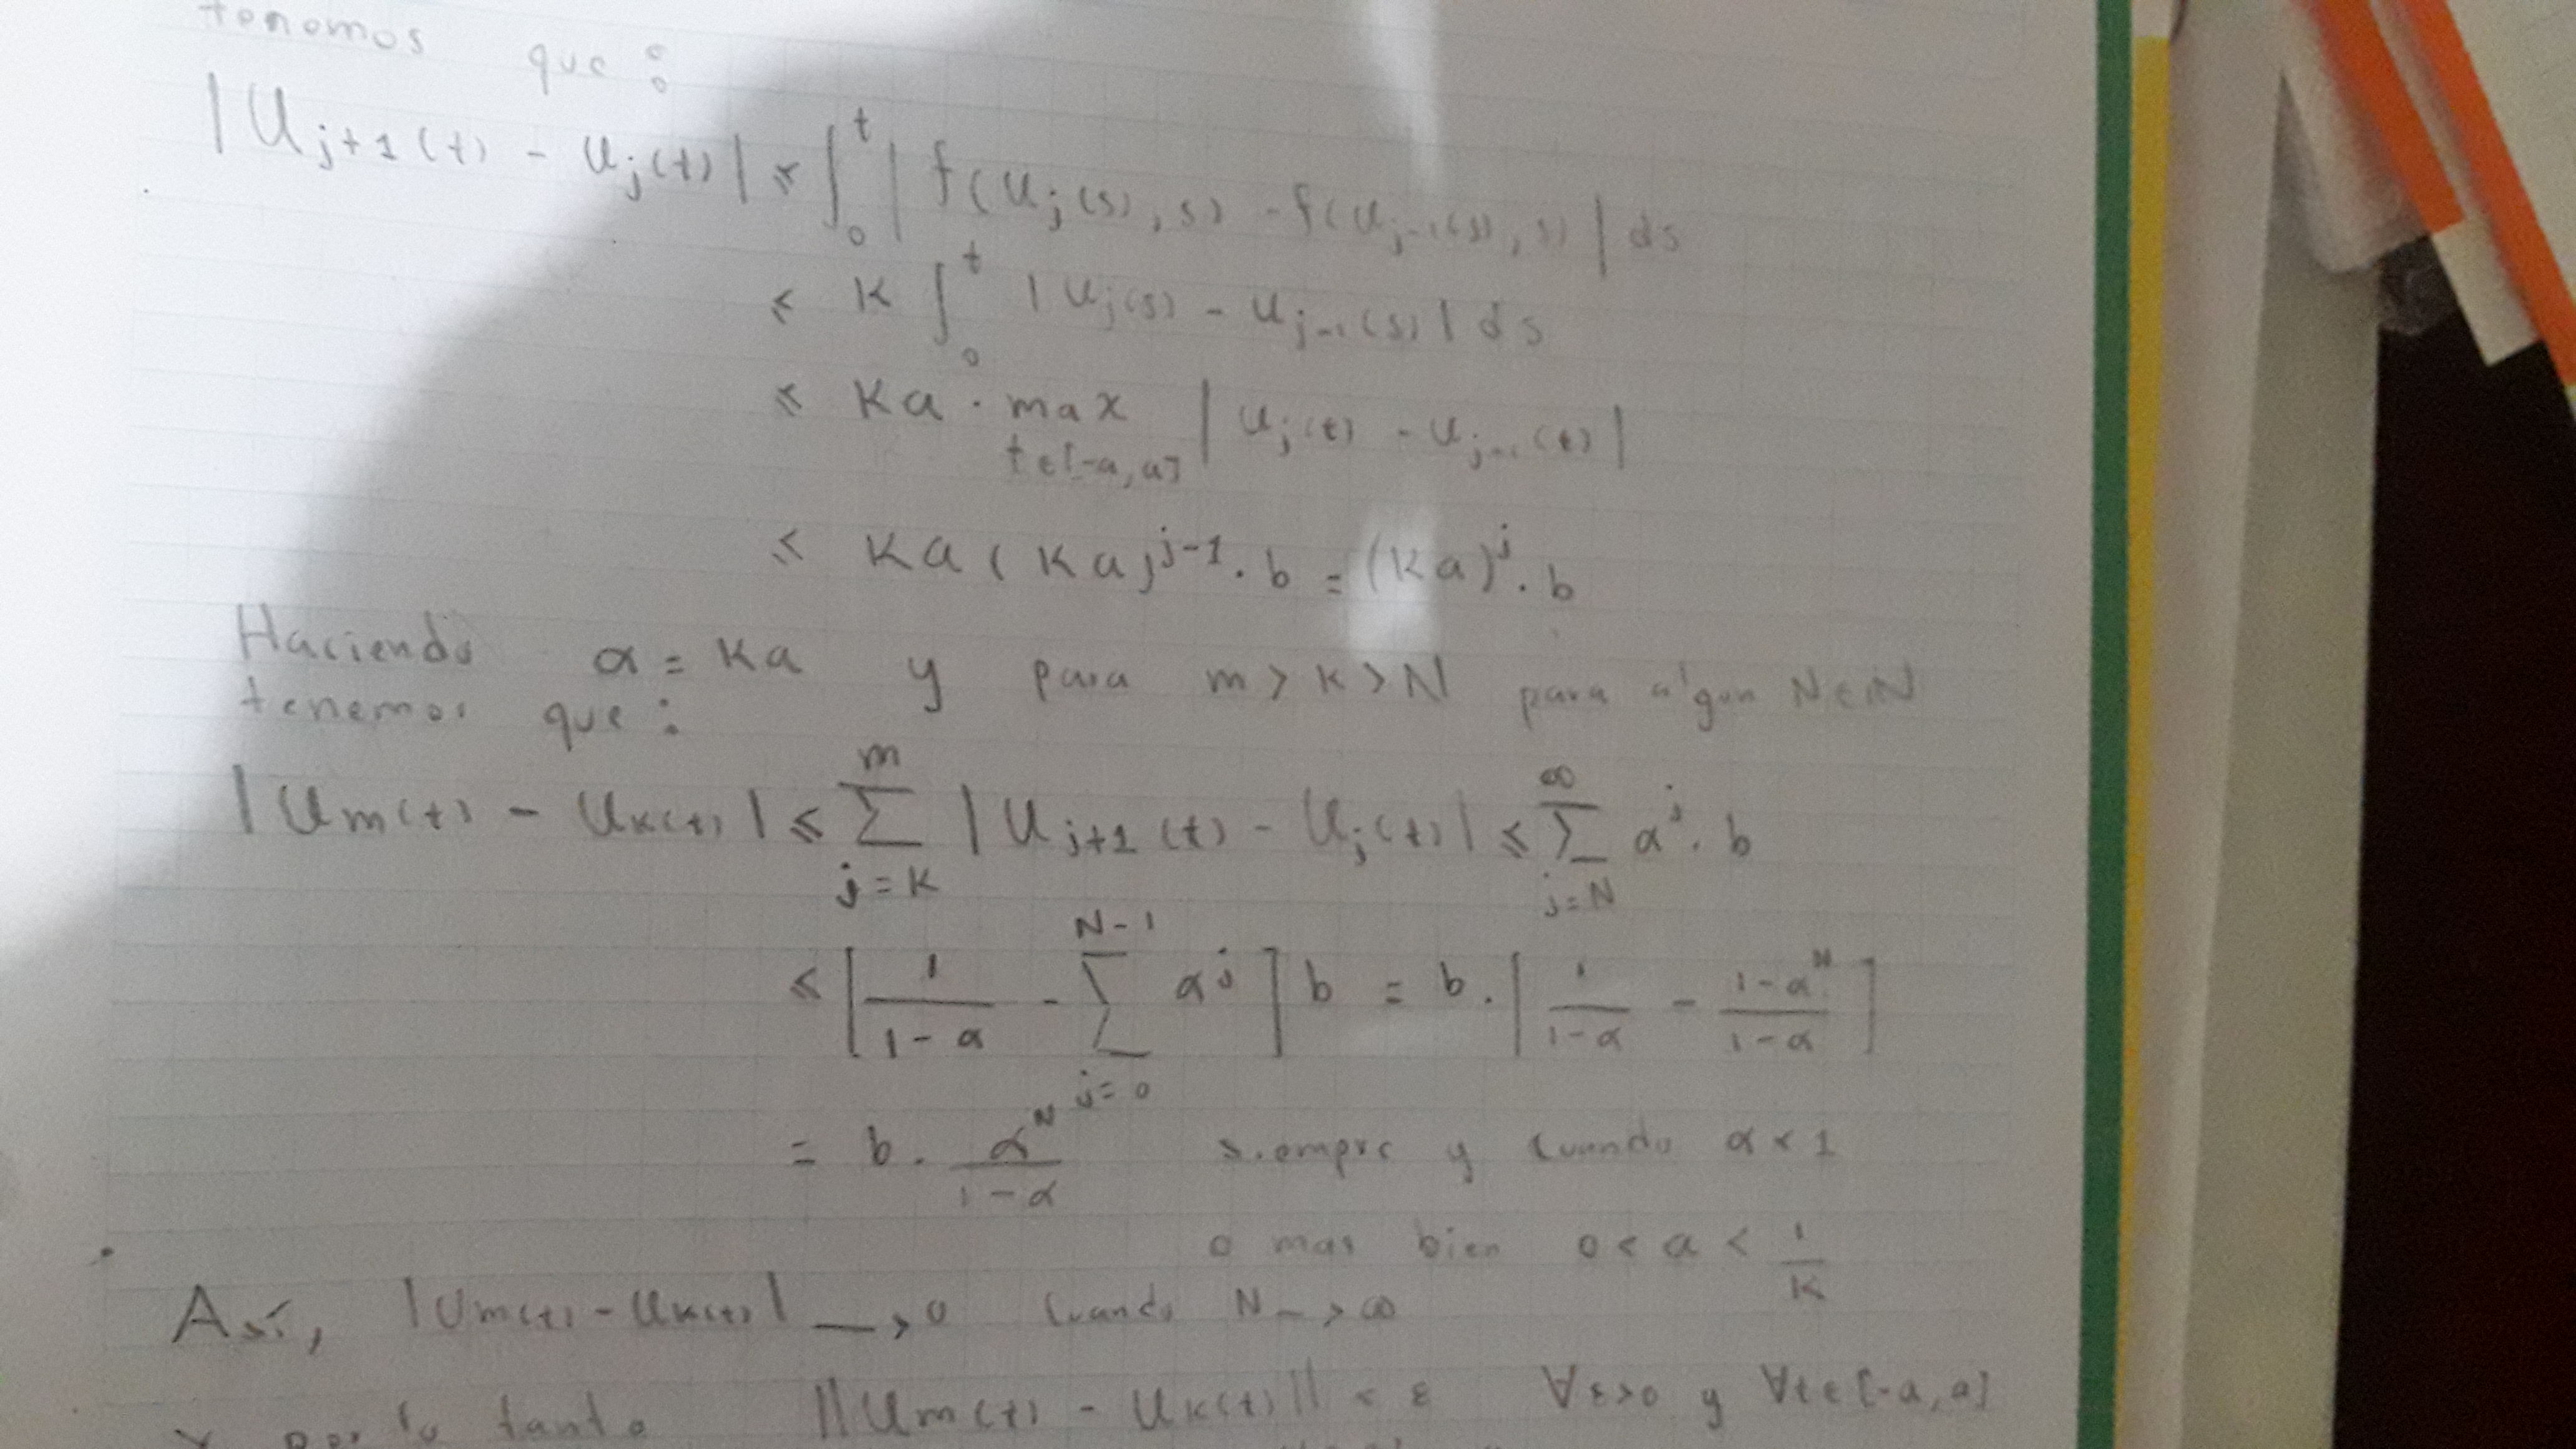 tenemos que :
| U_{j+1}(t) - U_j(t) | ≤ ∫_0^t | f(U_j(s),s) - f(U_{j-1}(s),s) | ds
≤ K ∫_0^t | U_j(s) - U_{j-1}(s) | ds
≤ Ka · max_{t∈[-a,a]} | U_j(t) - U_{j-1}(t) |
≤ Ka (Ka)^{j-1} · b = (Ka)^j · b
Haciendo α = Ka y para m > K > N para algun N∈ℕ
tenemos que :
| U_m(t) - U_K(t) | ≤ ∑_{j=K}^{m} | U_{j+1}(t) - U_j(t) | ≤ ∑_{j=N}^{∞} α^j · b
≤ [ 1/(1-α) - ∑_{j=0}^{N-1} α^j ] b = b · [ 1/(1-α) - (1-α^N)/(1-α) ]
= b · α^N/(1-α) siempre y cuando α < 1
o mas bien 0 < a < 1/K
Así, | U_m(t) - U_K(t) | → 0 cuando N → ∞
y por lo tanto || U_m(t) - U_K(t) || < ε ∀ε>0 y ∀t∈[-a,a]